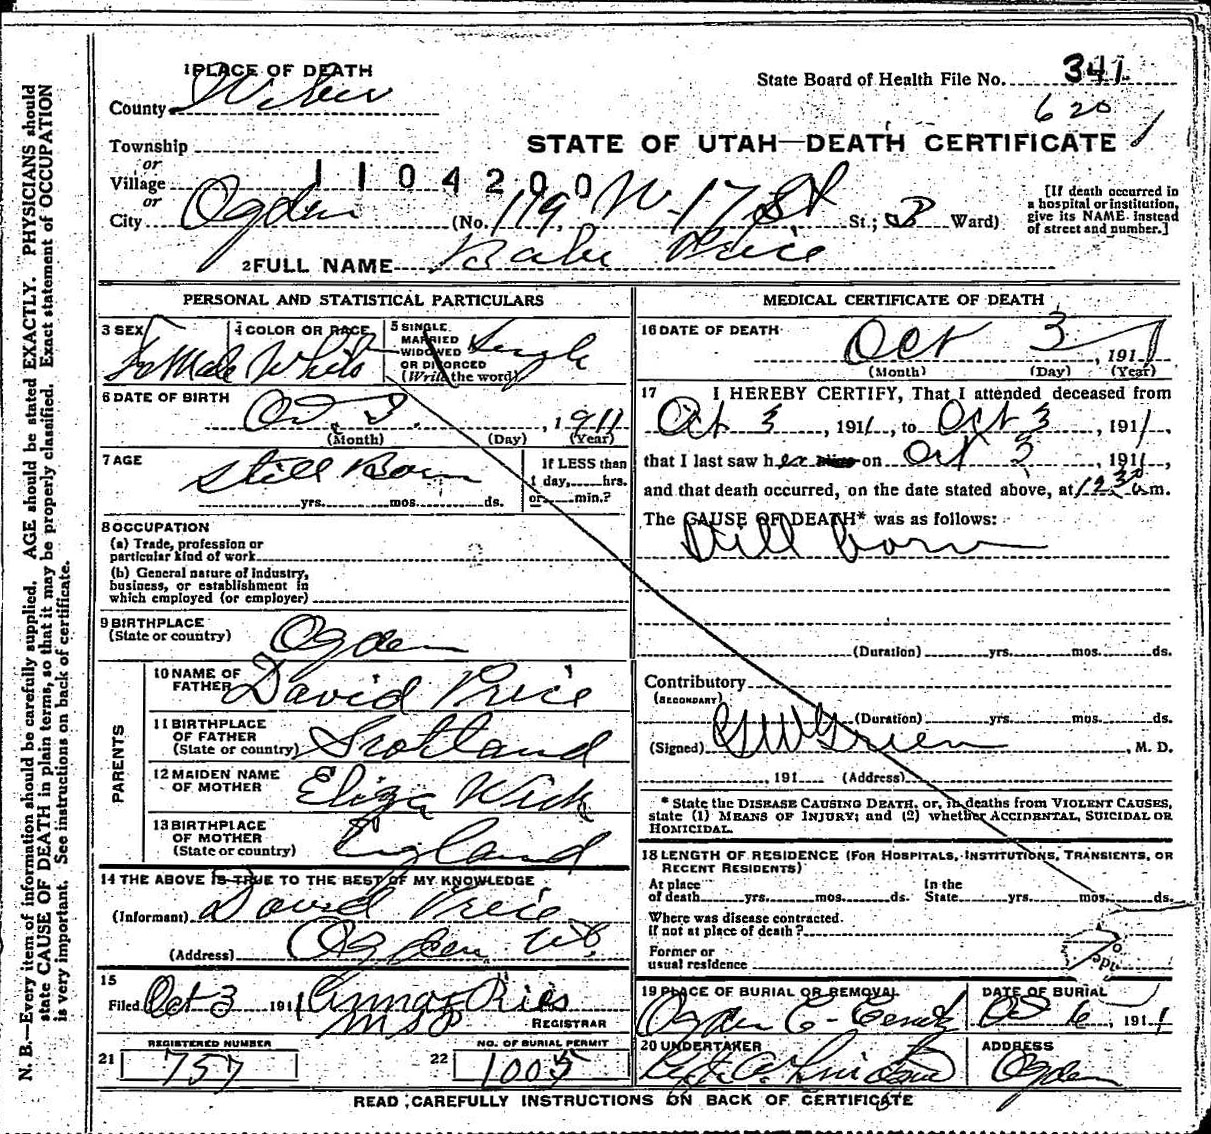 1 PLACE OF DEATH
State Board of Health File No. 341
County Weber
620
Township
STATE OF UTAH—DEATH CERTIFICATE
or
Village 1104200
or
City Ogden (No. 119 W. 17 St St.; 3 Ward)
[If death occurred in a hospital or institution, give its NAME instead of street and number.]
2 FULL NAME Babe Price
PERSONAL AND STATISTICAL PARTICULARS
3 SEX Female
4 COLOR OR RACE White
5 SINGLE MARRIED WIDOWED OR DIVORCED (Write the word) Single
6 DATE OF BIRTH Oct 3, 1911
(Month) (Day) (Year)
7 AGE Still Born
yrs. mos. ds.
If LESS than 1 day, hrs. or min.?
8 OCCUPATION
(a) Trade, profession or particular kind of work
(b) General nature of industry, business, or establishment in which employed (or employer)
9 BIRTHPLACE (State or country) Ogden
PARENTS
10 NAME OF FATHER David Price
11 BIRTHPLACE OF FATHER (State or country) Scotland
12 MAIDEN NAME OF MOTHER Eliza Wick
13 BIRTHPLACE OF MOTHER (State or country) England
14 THE ABOVE IS TRUE TO THE BEST OF MY KNOWLEDGE
(Informant) David Price
(Address) Ogden Ut
15
Filed Oct 3 1911
REGISTRAR
21 REGISTERED NUMBER 757
22 NO. OF BURIAL PERMIT 1005
MEDICAL CERTIFICATE OF DEATH
16 DATE OF DEATH Oct 3, 1911
(Month) (Day) (Year)
17 I HEREBY CERTIFY, That I attended deceased from
Oct 3, 1911, to Oct 3, 1911,
that I last saw her alive on Oct 3, 1911,
and that death occurred, on the date stated above, at 12 30 a.m.
The CAUSE OF DEATH* was as follows:
Still born
(Duration) yrs. mos. ds.
Contributory
(SECONDARY)
(Duration) yrs. mos. ds.
(Signed) , M. D.
, 191 (Address)
* State the DISEASE CAUSING DEATH, or, in deaths from VIOLENT CAUSES, state (1) MEANS OF INJURY; and (2) whether ACCIDENTAL, SUICIDAL OR HOMICIDAL.
18 LENGTH OF RESIDENCE (FOR HOSPITALS, INSTITUTIONS, TRANSIENTS, OR RECENT RESIDENTS)
At place of death yrs. mos. ds. In the State yrs. mos. ds.
Where was disease contracted, if not at place of death?
Former or usual residence
19 PLACE OF BURIAL OR REMOVAL Ogden C
DATE OF BURIAL Oct 6, 1911
20 UNDERTAKER
ADDRESS Ogden
READ CAREFULLY INSTRUCTIONS ON BACK OF CERTIFICATE
N. B.—Every item of information should be carefully supplied. AGE should be stated EXACTLY. PHYSICIANS should
state CAUSE OF DEATH in plain terms, so that it may be properly classified. Exact statement of OCCUPATION
is very important. See instructions on back of certificate.